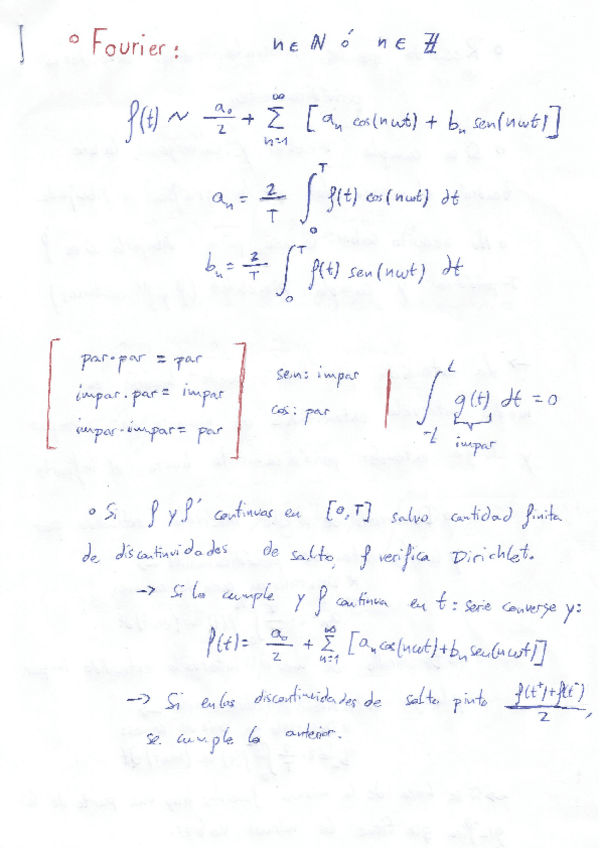 ° Fourier: n ∈ ℕ ó n ∈ ℤ
f(t) ~ a₀/2 + ∞ Σ n=1 [aₙ cos(nωt) + bₙ sen(nωt)]
aₙ = 2/T ∫₀ᵀ f(t) cos(nωt) dt
bₙ = 2/T ∫₀ᵀ f(t) sen(nωt) dt
par·par = par
impar·par = impar
impar·impar = par
sen: impar
cos: par
∫₋Lᴸ g(t) dt = 0
impar
° Si f y f' continuas en [0,T] salvo cantidad finita
de discontinuidades de salto, f verifica Dirichlet.
→ Si lo cumple y f continua en t: serie converge y:
f(t) = a₀/2 + ∞ Σ n=1 [aₙ cos(nωt) + bₙ sen(nωt)]
→ Si en las discontinuidades de salto pinto f(t⁺)+f(t⁻)/2,
se cumple lo anterior.